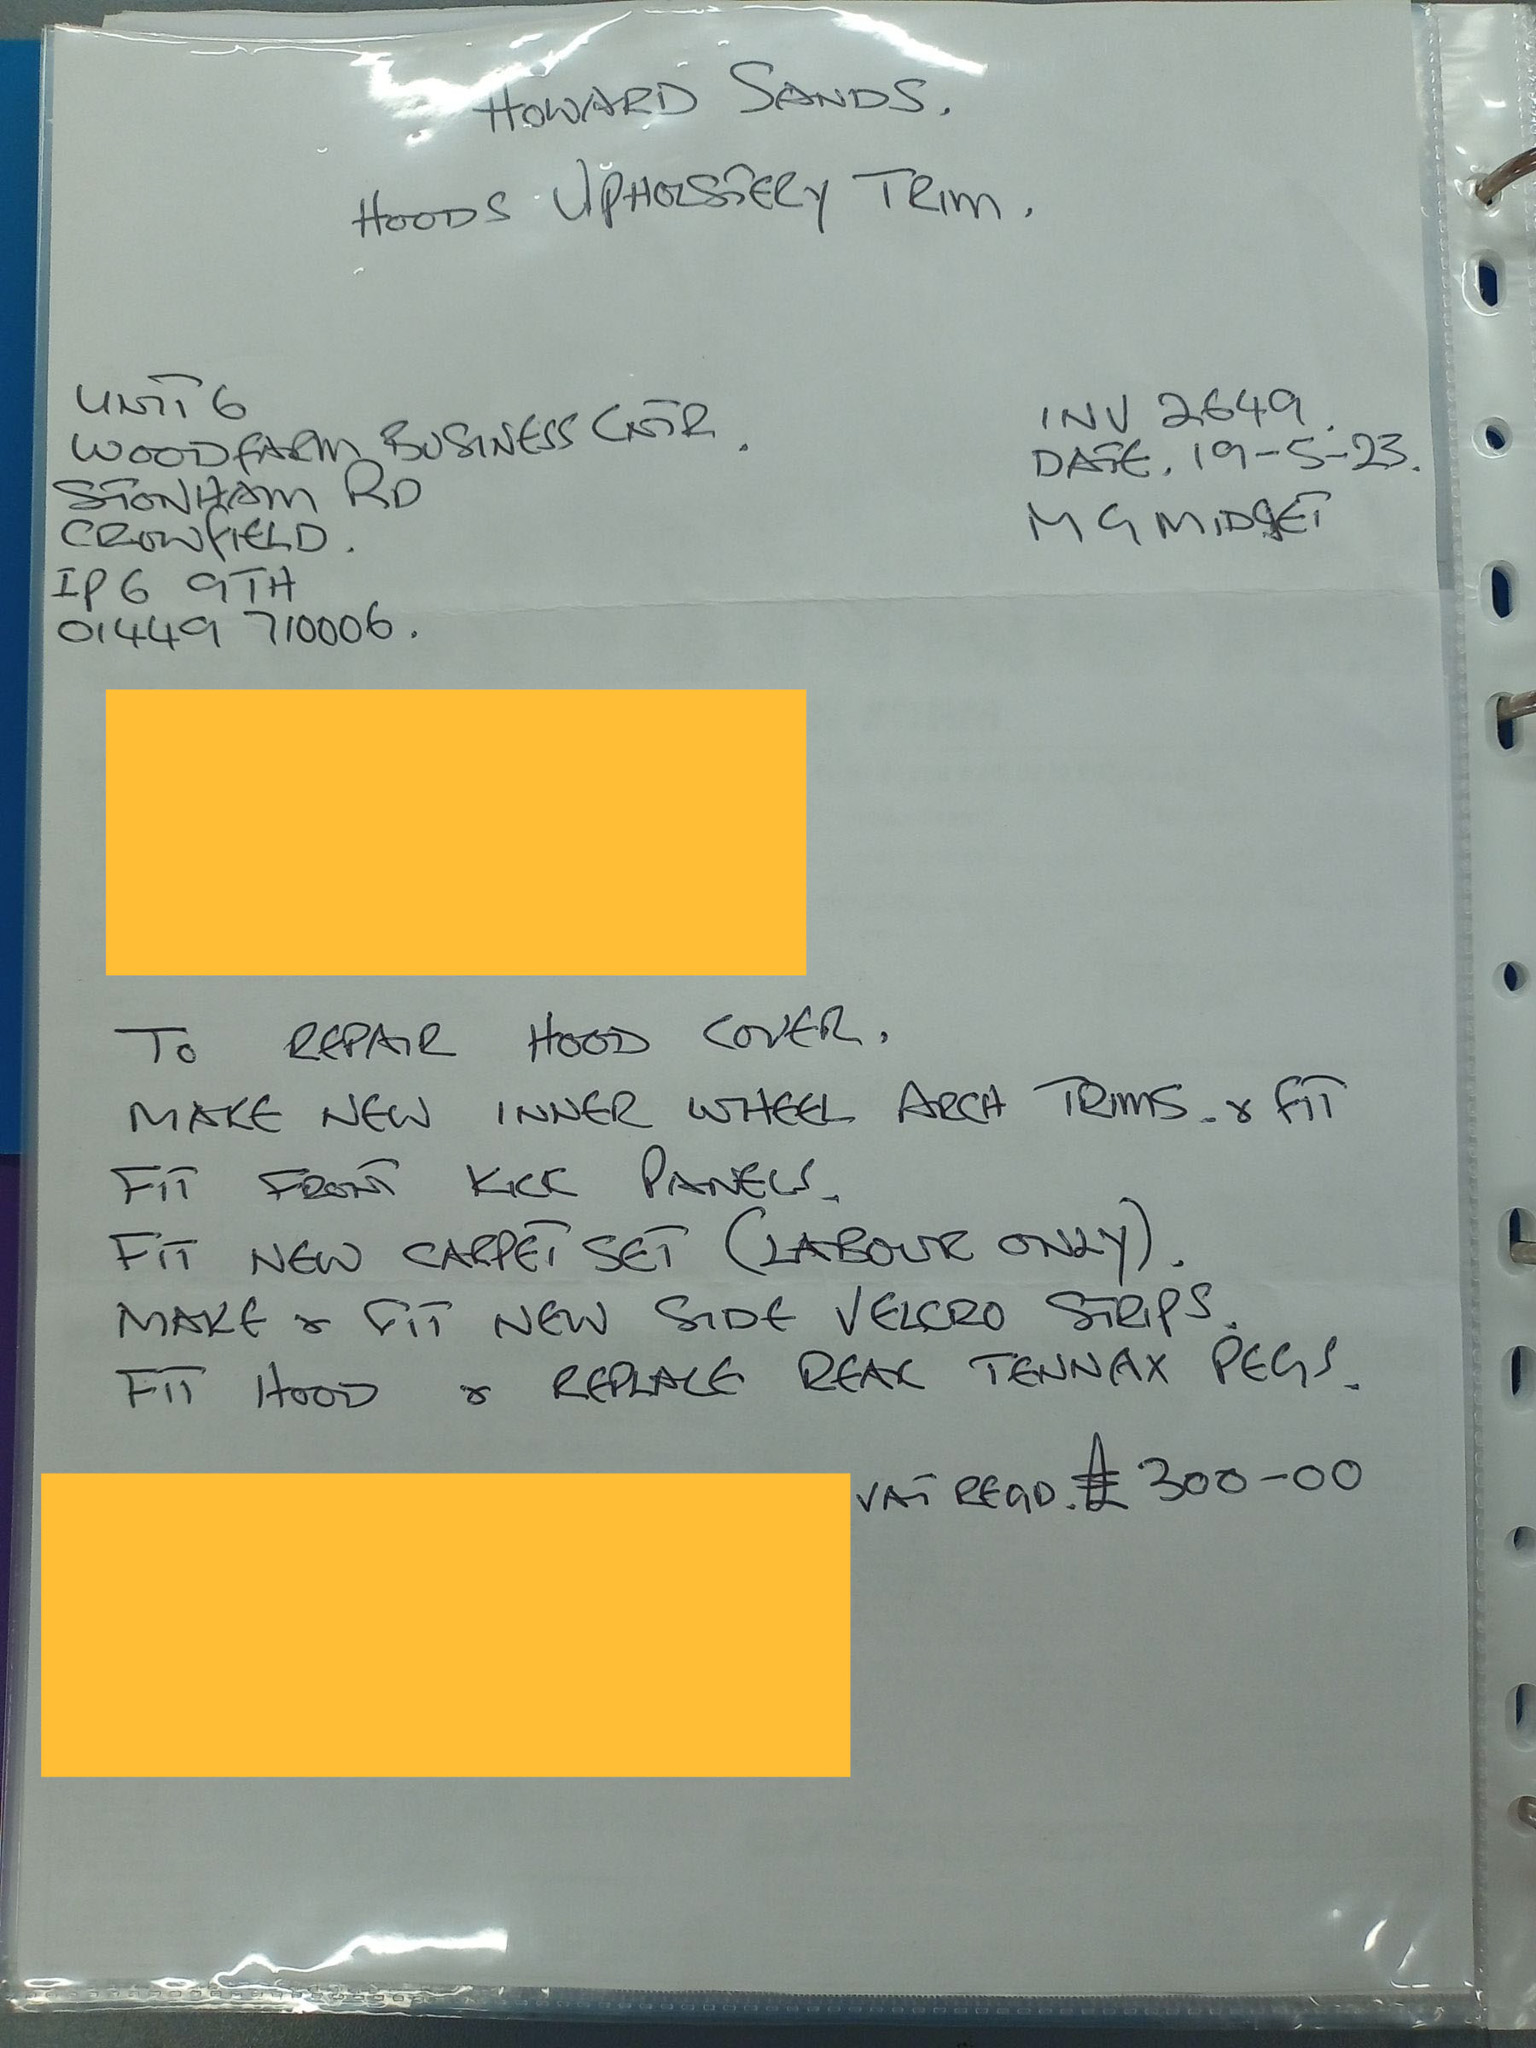 HOWARD SANDS.
HOODS UPHOLSTERY TRIM.
UNIT 6
WOODFARM BUSINESS CNTR.
STONHAM RD
CROWFIELD.
IP6 9TH
01449 710006.
INV 2649.
DATE. 19-5-23.
MG MIDGET
TO REPAIR HOOD COVER.
MAKE NEW INNER WHEEL ARCH TRIMS. & FIT
FIT FRONT KICK PANELS.
FIT NEW CARPET SET (LABOUR ONLY).
MAKE & FIT NEW SIDE VELCRO STRIPS.
FIT HOOD & REPLACE REAR TENNAX PEGS.
VAT REGD. £300-00